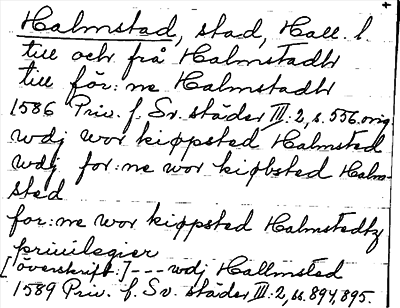 Halmstad, stad, Hall. l.
till och frå Halmstadh
till för:ne Halmstadh
1586 Priv. f. Sv. städer III:2, s. 556. orig
wdj wor kiøpsted Halmsted
wdj for:ne wor kiøbsted Halm-
sted
for:ne wor kiøpsted Halmstedtz
priuilegier
[överskrift:] --- wdj Hallmsted
1589 Priv. f. Sv. städer III:2, ss. 894, 895.